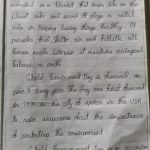 defined as a Planet that helps life on the
planet safe and sound. It plays a vital
role in keeping living things healthy. It
provides food, shelter, air, and fulfills all
human needs because it maintains ecological
balance on earth.
World Environment Day is observed on
june 5 every year. The Day was celebrated
in 1974 in the city of spokane in the USA
To raise awareness about the importance
of protecting the environment.
World Environment Day is an occasion